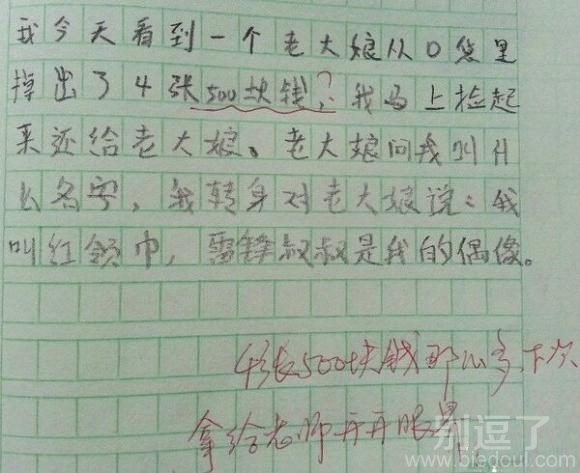 我今天看到一个老大娘从口袋里
掉出了4张500块钱?我马上捡起
来还给老大娘。老大娘问我叫什
么名字，我转身对老大娘说：我
叫红领巾，雷锋叔叔是我的偶像。
4张500块钱那么多,下次
拿给老师开开眼界
别逗了
www.biedoul.com